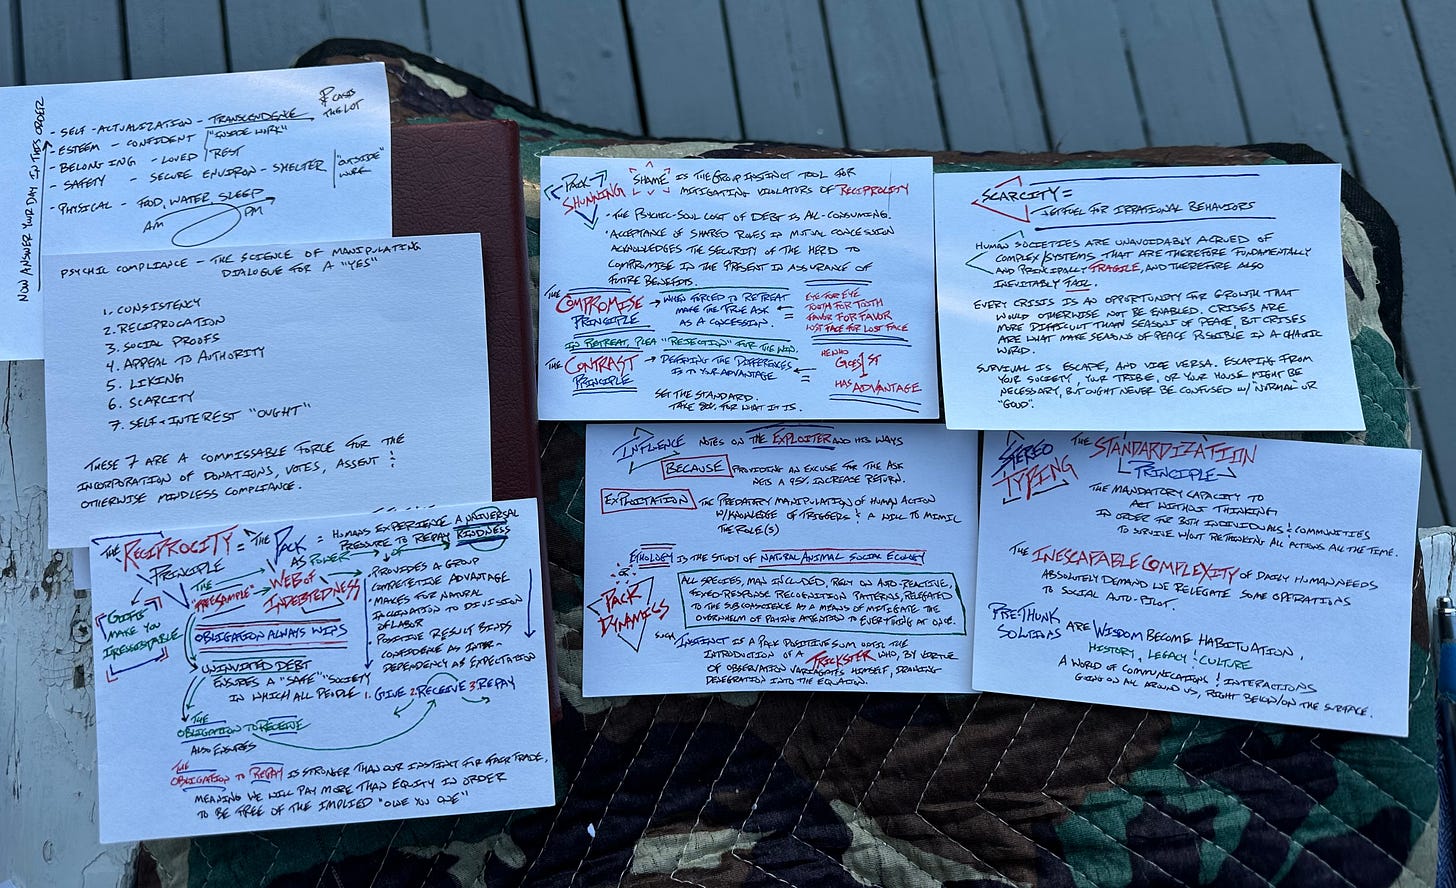 NOW ANSWER YOUR DAY IN THIS ORDER
- SELF-ACTUALIZATION - TRANSCENDENCE
THE LOT
- ESTEEM - CONFIDENT "INSIDE WORK"
- BELONGING - LOVED REST
- SAFETY - SECURE ENVIRON - SHELTER "OUTSIDE" WORK
- PHYSICAL - FOOD, WATER, SLEEP
AM PM
PSYCHIC COMPLIANCE - THE SCIENCE OF MANIPULATING
DIALOGUE FOR A "YES"
1. CONSISTENCY
2. RECIPROCATION
3. SOCIAL PROOFS
4. APPEAL TO AUTHORITY
5. LIKING
6. SCARCITY
7. SELF-INTEREST "OUGHT"
THESE 7 ARE A COMMISSABLE FORCE FOR THE
INCORPORATION OF DONATIONS, VOTES, ASSENT &
OTHERWISE MINDLESS COMPLIANCE.
THE RECIPROCITY PRINCIPLE = THE PACK AS POWER = HUMANS EXPERIENCE A UNIVERSAL
PRESSURE TO REPAY KINDNESS
GIFTS
MAKE YOU
IRRESISTABLE
THE
"FREE SAMPLE"
WEB OF
INDEBTEDNESS
OBLIGATION ALWAYS WINS
• PROVIDES A GROUP
COMPETITIVE ADVANTAGE
• MAKES FOR NATURAL
INCLINATION TO DIVISION
OF LABOR
POSITIVE RESULT BINDS
CONFIDENCE AS INTER-
DEPENDENCY AS EXPECTATION
UNINVITED DEBT
ENSURES A "SAFE" SOCIETY
IN WHICH ALL PEOPLE 1. GIVE 2. RECEIVE 3. REPAY
THE
OBLIGATION TO RECEIVE
ALSO ENSURES
THE
OBLIGATION TO REPAY IS STRONGER THAN OUR INSTINCT FOR FAIR TRADE,
MEANING WE WILL PAY MORE THAN EQUITY IN ORDER
TO BE FREE OF THE IMPLIED "OWE YOU ONE"
PACK
SHUNNING
SHAME IS THE GROUP INSTINCT TOOL FOR
MITIGATING VIOLATORS OF RECIPROCITY
• THE PSYCHIC-SOUL COST OF DEBT IS ALL-CONSUMING.
• ACCEPTANCE OF SHARED ROLES IN MUTUAL CONCESSION
ACKNOWLEDGES THE SECURITY OF THE HERD TO
COMPROMISE IN THE PRESENT IN ASSURANCE OF
FUTURE BENEFITS.
THE
COMPROMISE
PRINCIPLE
WHEN FORCED TO RETREAT
MAKE THE TRUE ASK
AS A CONCESSION.
=
EYE FOR EYE
TOOTH FOR TOOTH
FAVOR FOR FAVOR
LOST FACE FOR LOST FACE
IN RETREAT, PLEA "REJECTION" FOR THE WIN.
THE CONTRAST
PRINCIPLE
DEFINING THE DIFFERENCES
IS TO YOUR ADVANTAGE
=
HE WHO
GOES 1ST
HAS ADVANTAGE
SET THE STANDARD.
TAKE 80% FOR WHAT IT IS.
SCARCITY =
JETFUEL FOR IRRATIONAL BEHAVIORS
HUMAN SOCIETIES ARE UNAVOIDABLY ACRUED OF
COMPLEX SYSTEMS THAT ARE THEREFORE FUNDAMENTALLY
AND PRINCIPALLY FRAGILE, AND THEREFORE ALSO
INEVITABLY FAIL.
EVERY CRISIS IS AN OPPORTUNITY FOR GROWTH THAT
WOULD OTHERWISE NOT BE ENABLED. CRISES ARE
MORE DIFFICULT THAN SEASONS OF PEACE, BUT CRISES
ARE WHAT MAKE SEASONS OF PEACE POSSIBLE IN A CHAOTIC
WORLD.
SURVIVAL IS ESCAPE, AND VICE VERSA. ESCAPING FROM
YOUR SOCIETY, YOUR TRIBE, OR YOUR HOUSE MIGHT BE
NECESSARY, BUT OUGHT NEVER BE CONFUSED W/ NORMAL OR
"GOOD".
INFLUENCE NOTES ON THE EXPLOITER AND HIS WAYS
BECAUSE PROVIDING AN EXCUSE FOR THE ASK
NETS A 95% INCREASE RETURN.
EXPLOITATION THE PREDATORY MANIPULATION OF HUMAN ACTION
W/ KNOWLEDGE OF TRIGGERS & A WILL TO MIMIC
THE ROLE(S)
ETHOLOGY IS THE STUDY OF NATURAL ANIMAL SOCIAL ECOLOGY
OR
PACK
DYNAMICS
ALL SPECIES, MAN INCLUDED, RELY ON AUTO-REACTIVE,
FIXED-RESPONSE RECOGNITION PATTERNS, RELEGATED
TO THE SUBCONSCIENCE AS A MEANS OF MITIGATE THE
OVERWHELM OF PAYING ATTENTION TO EVERYTHING AT ONCE.
SUCH
INSTINCT IS A PACK POSITIVE SUM UNTIL THE
INTRODUCTION OF A TRICKSTER WHO, BY VIRTUE
OF OBSERVATION VARIAGATES HIMSELF, DRAWING
DENEGRATION INTO THE EQUATION.
STEREO
TYPING
THE STANDARDIZATION
PRINCIPLE
THE MANDATORY CAPACITY TO
ACT WITHOUT THINKING
IN ORDER FOR BOTH INDIVIDUALS & COMMUNITIES
TO SURVIVE W/OUT RETHINKING ALL ACTIONS ALL THE TIME.
THE INESCAPABLE COMPLEXITY OF DAILY HUMAN NEEDS
ABSOLUTELY DEMAND WE RELEGATE SOME OPERATIONS
TO SOCIAL AUTO-PILOT.
PRE-THUNK
SOLUTIONS ARE WISDOM BECOME HABITUATION,
HISTORY, LEGACY & CULTURE
A WORLD OF COMMUNICATIONS & INTERACTIONS
GOING ON ALL AROUND US, RIGHT BELOW/ON THE SURFACE.